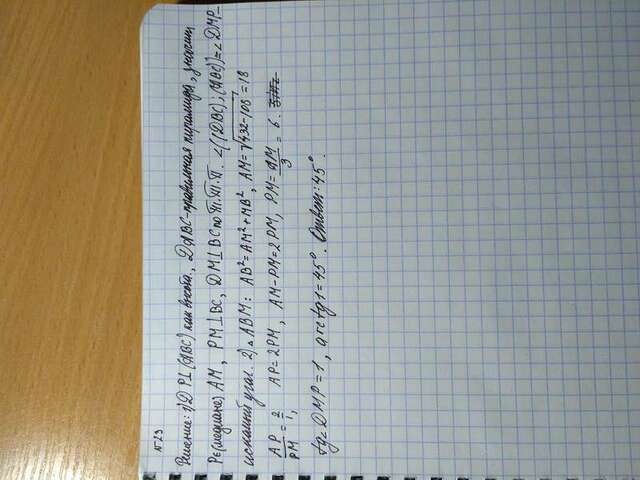 N23
Решение: 1) DP⊥(ABC) как высота., DABC-правильная пирамида, значит
P∈(медиане) AM, PM⊥BC, DM⊥BC по Т.Т.П. ∠((DBC);(ABC))=∠DMP-
искомый угол. 2) △ABM: AB²=AM²+MB², AM=√432-108=18
AP/PM=2/1, AP=2PM, AM-PM=2PM, PM=AM/3=6.
tg∠DMP=1, arctg1=45°. Ответ: 45°.